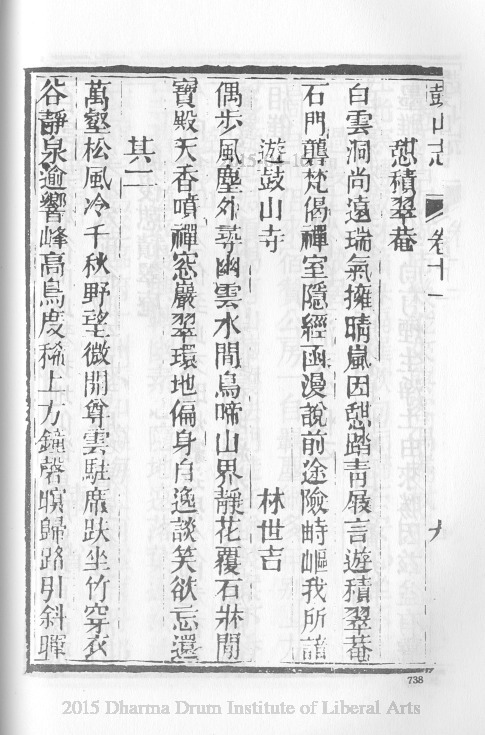 鼓山志 卷十一 九
憇積翠菴
白雲洞尚遠瑞氣擁晴嵐因憇踏青屐言遊積翠菴
石門梵偈禪室隱經函漫說前途險崎嶇我所諳
遊鼓山寺 林世吉
偶步風塵外尋幽雲水間鳥啼山界靜花覆石牀閒
寶殿天香噴禪窓巖翠環地偏身自逸談笑欲忘還
其二
萬壑松風冷千秋野望微開尊雲駐席趺坐竹穿衣
谷靜泉逾響峰高鳥度稀上方鐘磬暝歸路引斜暉
738
2015 Dharma Drum Institute of Liberal Arts